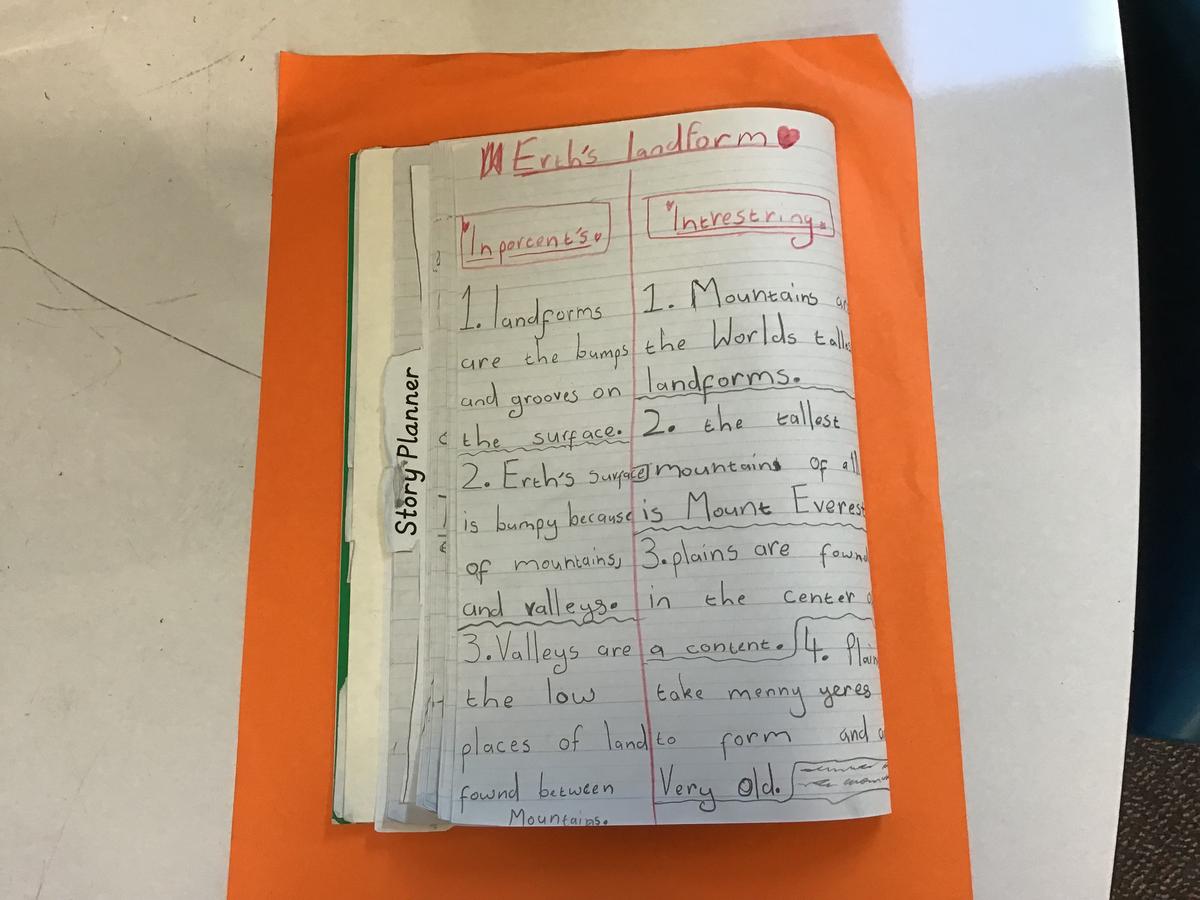 Erth's landform
Inporcent's
1. landforms
are the bumps
and grooves on
the surface.
2. Erth's surface
is bumpy because
of mountains,
and valleys.
3. Valleys are
the low
places of land
fownd between
Mountains.
Intrestring
1. Mountains
the Worlds
landforms.
2. the tallest
mountains of all
is Mount Everest
3. plains are
in the center
a content. 4.
take menny yeres
to form and
Very old.
Story Planner